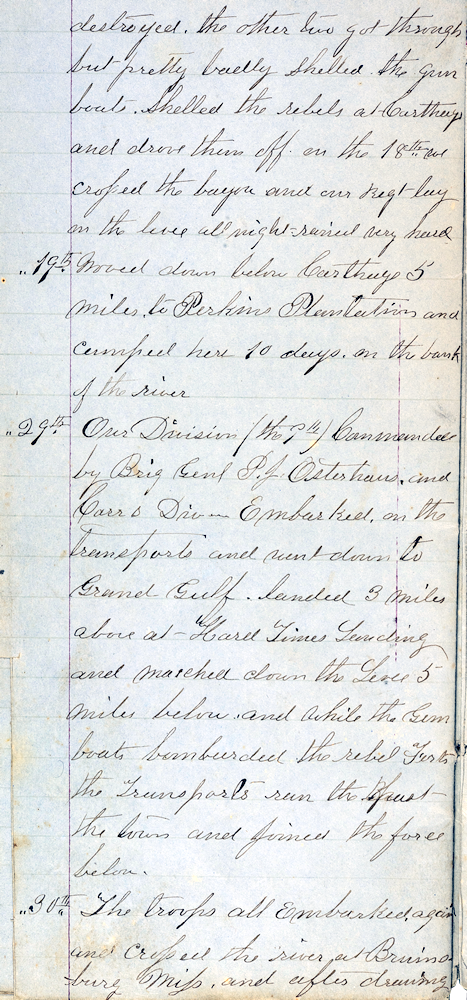 destroyed. the other two got through
but pretty badly shelled. the gun
boats. Shelled the rebels at Carthage
and drove them off. on the 18th we
crossed the bayou and our Regt lay
on the levee all night - rained very hard
"19th Moved down below Carthage 5
miles, to Perkins Plantation and
camped here 10 days. on the bank
of the river
"29th Our Division (the 9th) Commanded
by Brig Genl P.J. Osterhaus, and
Carrs Divn Embarked, on the
transports and went down to
Grand Gulf. landed 3 miles
above at - "Hard Times Landing
and marched down the Levee 5
miles below. and while the Gun
boats bombarded the rebel Forts
the Transports ran the
the town and joined the force
below.
"30th The troops all Embarked again
and crossed the river at Bruins-
burg Miss. and after drawing